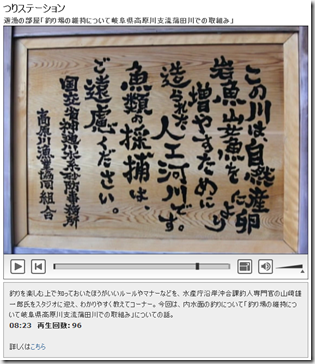 つりステーション
遊漁の部屋「釣り場の維持について岐阜県高原川支流蒲田川での取組み」
この川は自然産卵により
岩魚山女魚を
増やすために
造られた人工河川です。
魚類の採捕は、
ご遠慮ください。
国土交通省神通川水系砂防事務所
高原川漁業協同組合
釣りを楽しむ上で知っておいたほうがいいルールやマナーなどを、水産庁沿岸沖合課釣人専門官の山﨑雄
一郎氏をスタジオに迎え、わかりやすく教えてコーナー。今回は、内水面の釣りについて「釣り場の維持につ
いて岐阜県高原川支流蒲田川での取組み」についての話。
08:23 再生回数: 96
詳しくはこちら